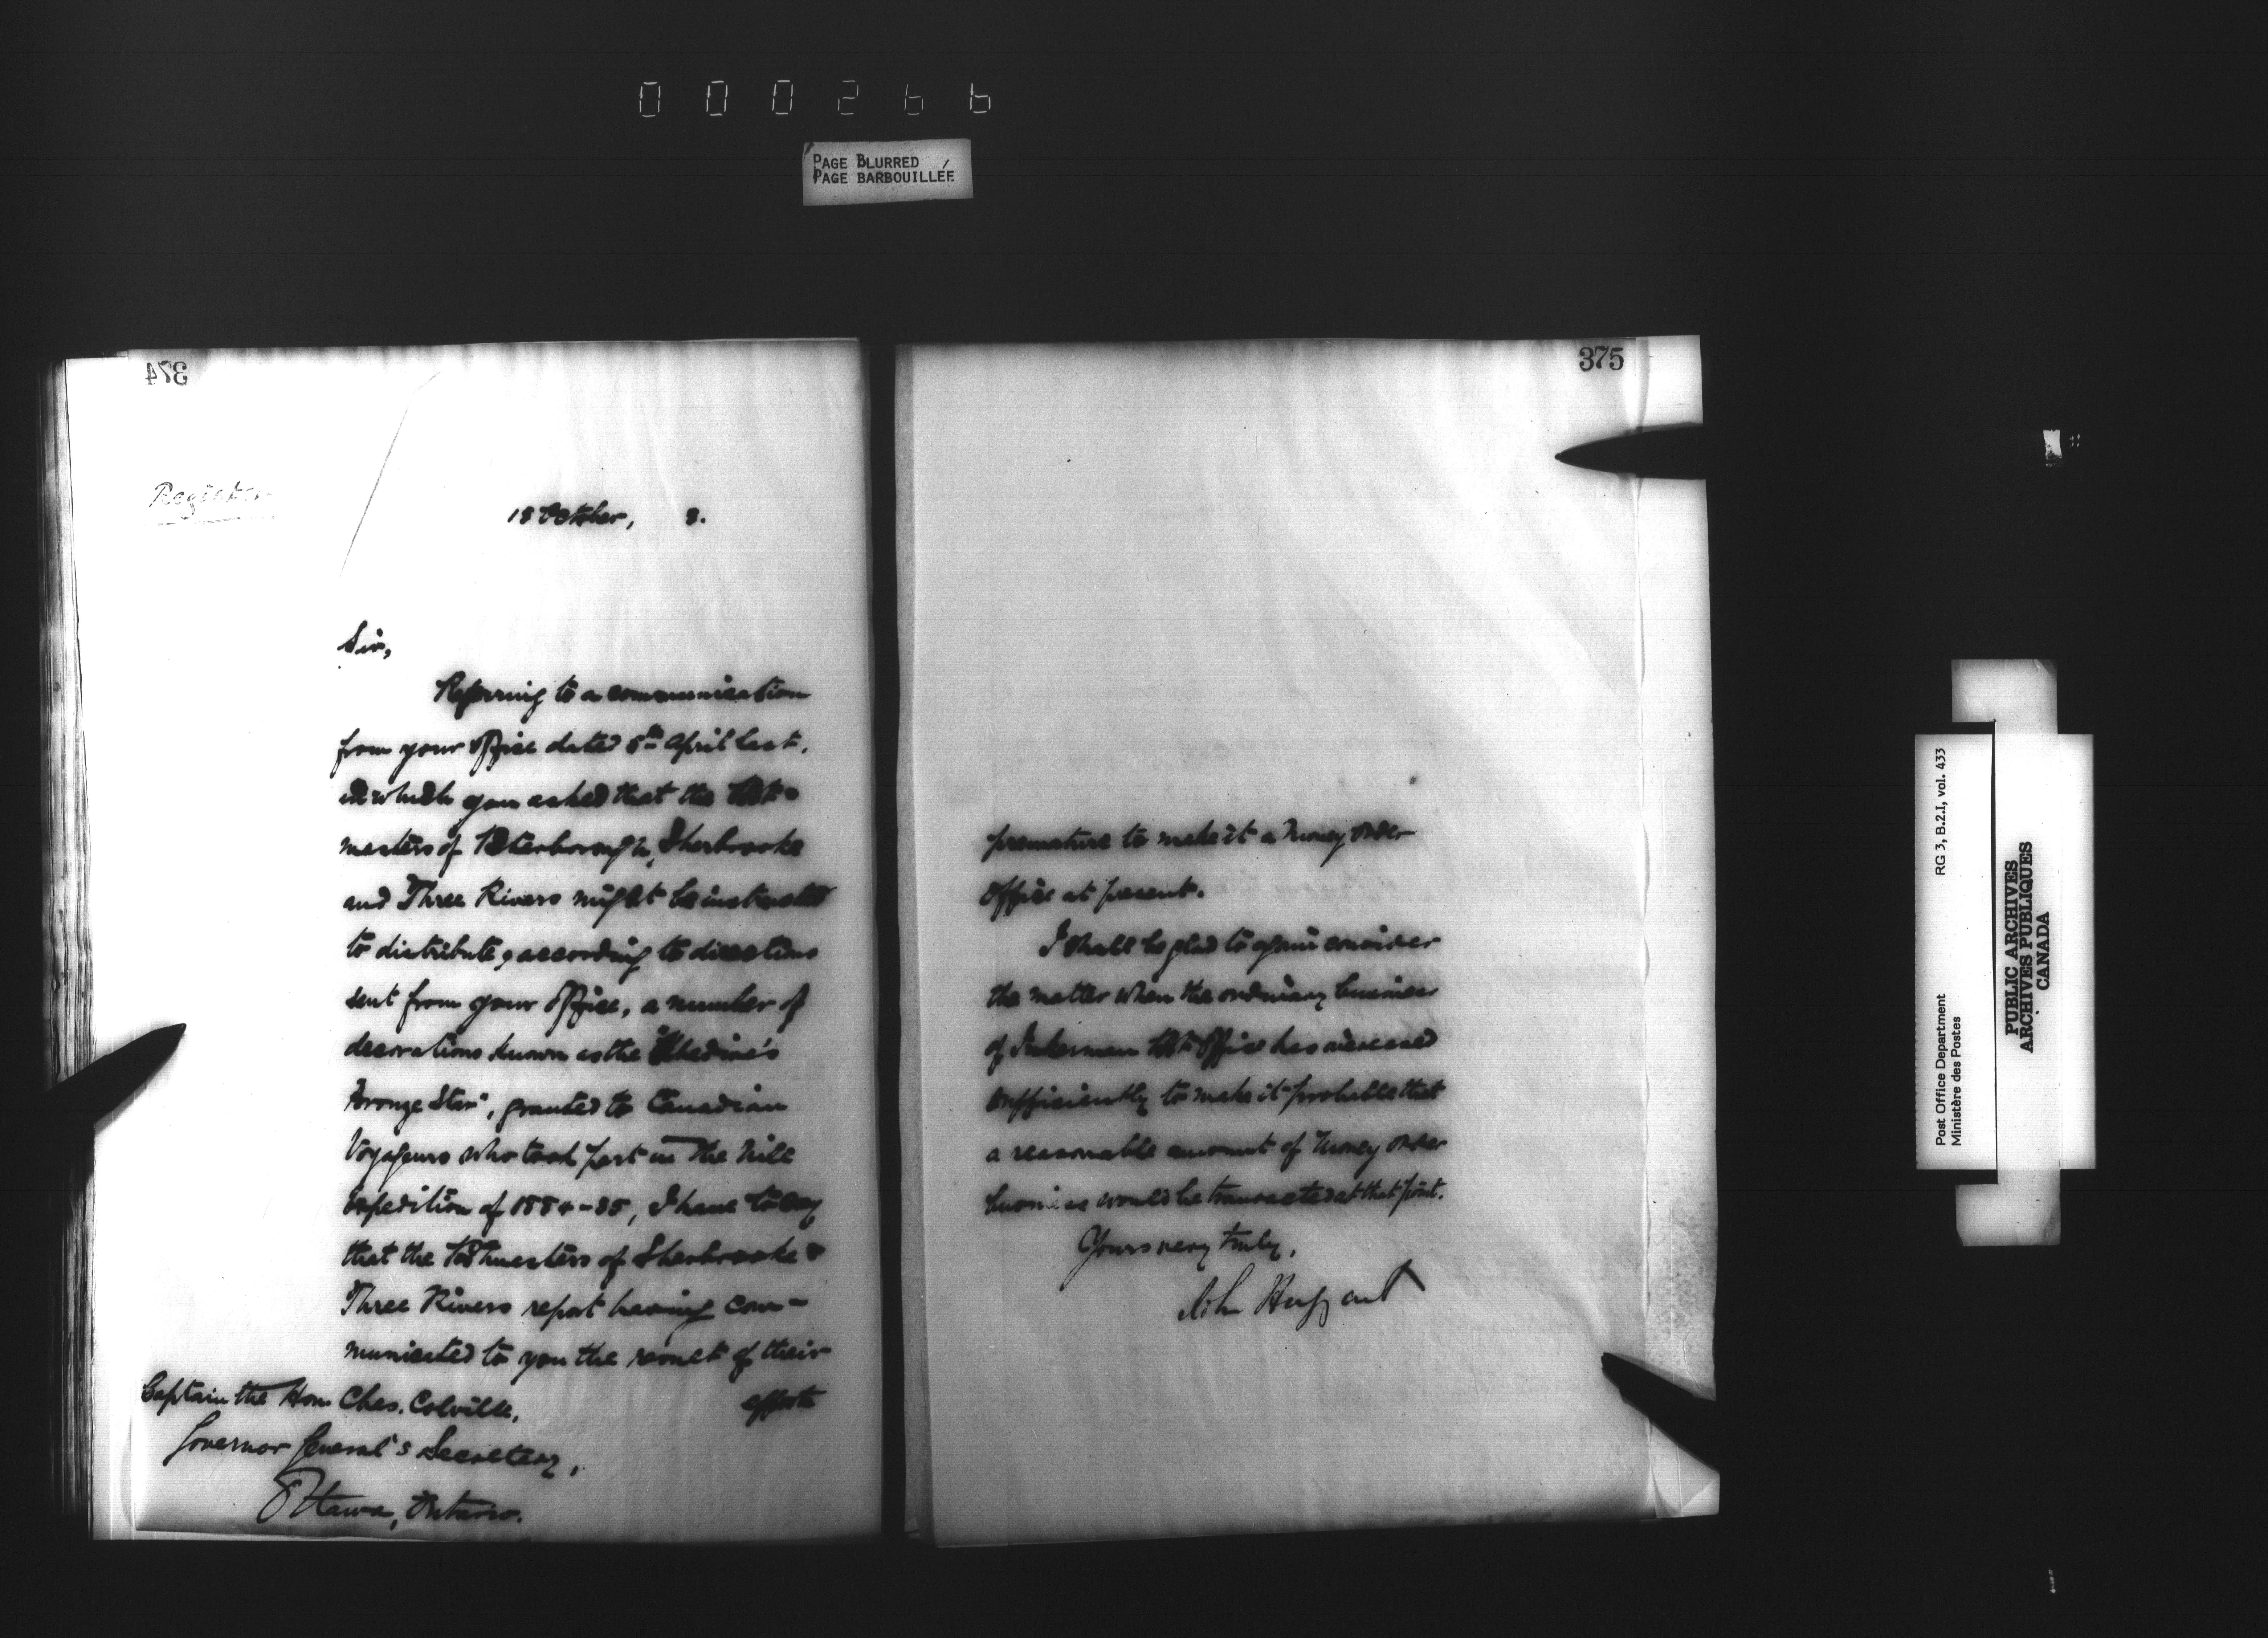 000266
PAGE BLURRED
PAGE BARBOUILLÉE
374
Register
18 October, 8.
Sir,
Referring to a communication
from your Office dated 5th April last,
in which you asked that the Post-
masters of Peterborough, Sherbrooke
and Three Rivers might be instructed
to distribute, according to directions
sent from your Office, a number of
decorations known as the "Khedive's
Bronze Star", granted to Canadian
Voyageurs who took part in the Nile
Expedition of 1884-85, I have to say
that the Postmasters of Sherbrooke &
Three Rivers report having com-
municated to you the result of their
efforts
Captain the Hon. Chas. Colville,
Governor General's Secretary,
Ottawa, Ontario.
375
premature to make it a Money Order
Office at present.
I shall be glad to again consider
the matter when the ordinary business
of Inkerman Post Office has increased
sufficiently to make it probable that
a reasonable amount of Money Order
business would be transacted at that point.
Yours very truly,
John Haggart
Post Office Department
Ministère des Postes
RG 3, B.2.I, vol. 433
PUBLIC ARCHIVES
ARCHIVES PUBLIQUES
CANADA